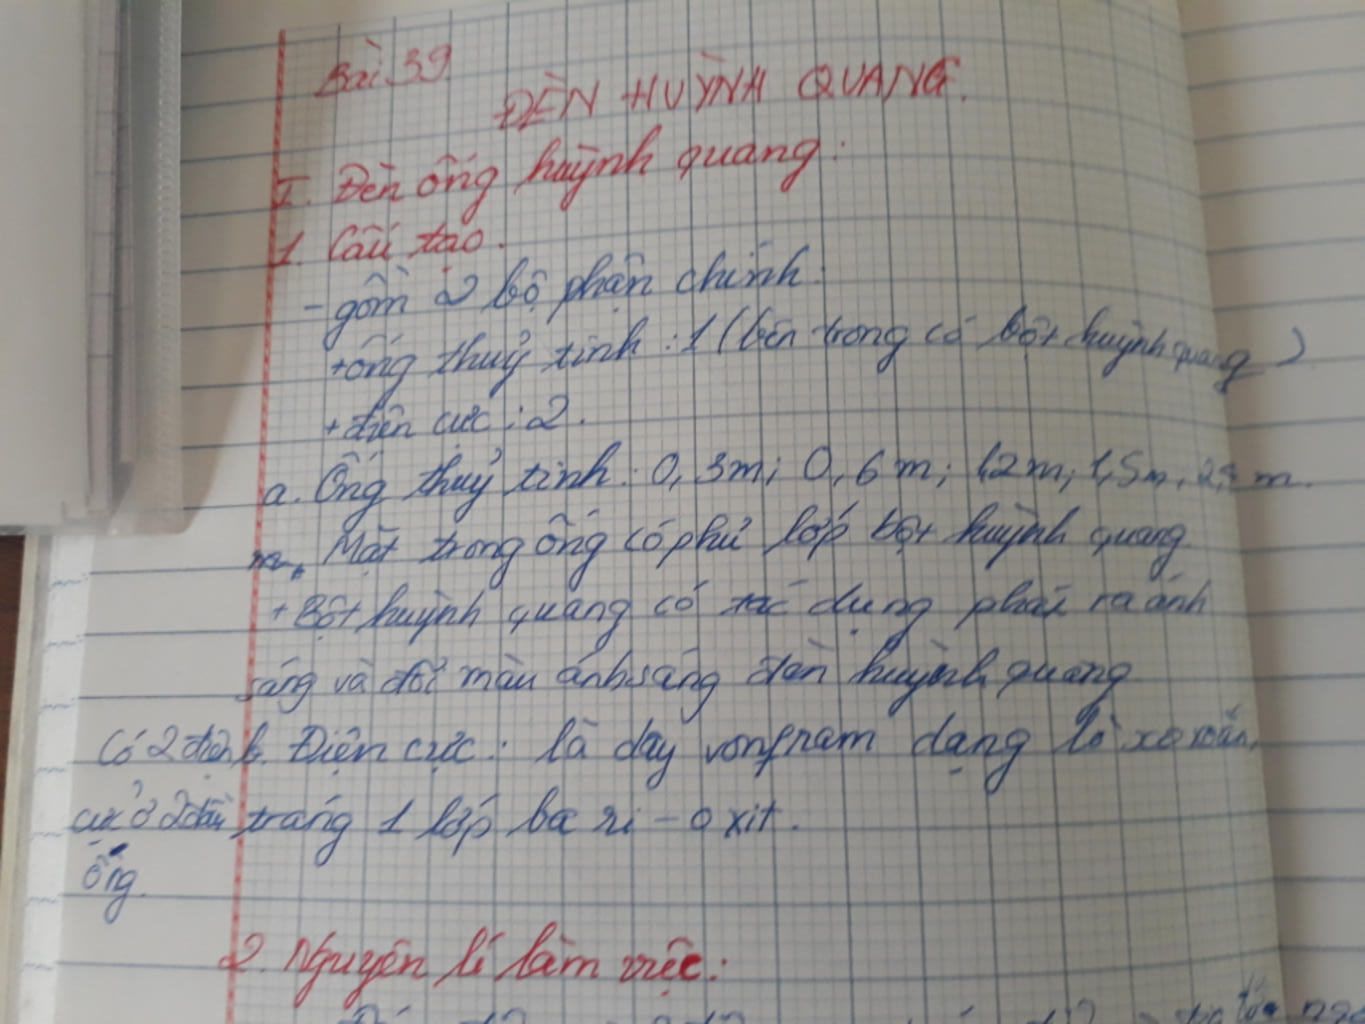 Bài 39
ĐÈN HUỲNH QUANG.
I. Đèn ống huỳnh quang:
1. Cấu tạo.
- gồm 2 bộ phận chính:
+ ống thuỷ tinh: 1 (bên trong có bột huỳnh quang)
+ điện cực: 2.
a. Ống thuỷ tinh: 0,3m; 0,6m; 1,2m; 1,5m, 2, m.
Mặt trong ống có phủ lớp bột huỳnh quang
+ Bột huỳnh quang có tác dụng phát ra ánh
sáng và đổi màu ánh sáng đèn huỳnh quang
b. Điện cực: là dây vonfram dạng lò xo xoắn,
tráng 1 lớp ba ri - oxit.
Có 2 điện
cực ở 2 đầu
ống.
2. Nguyên lí làm việc: